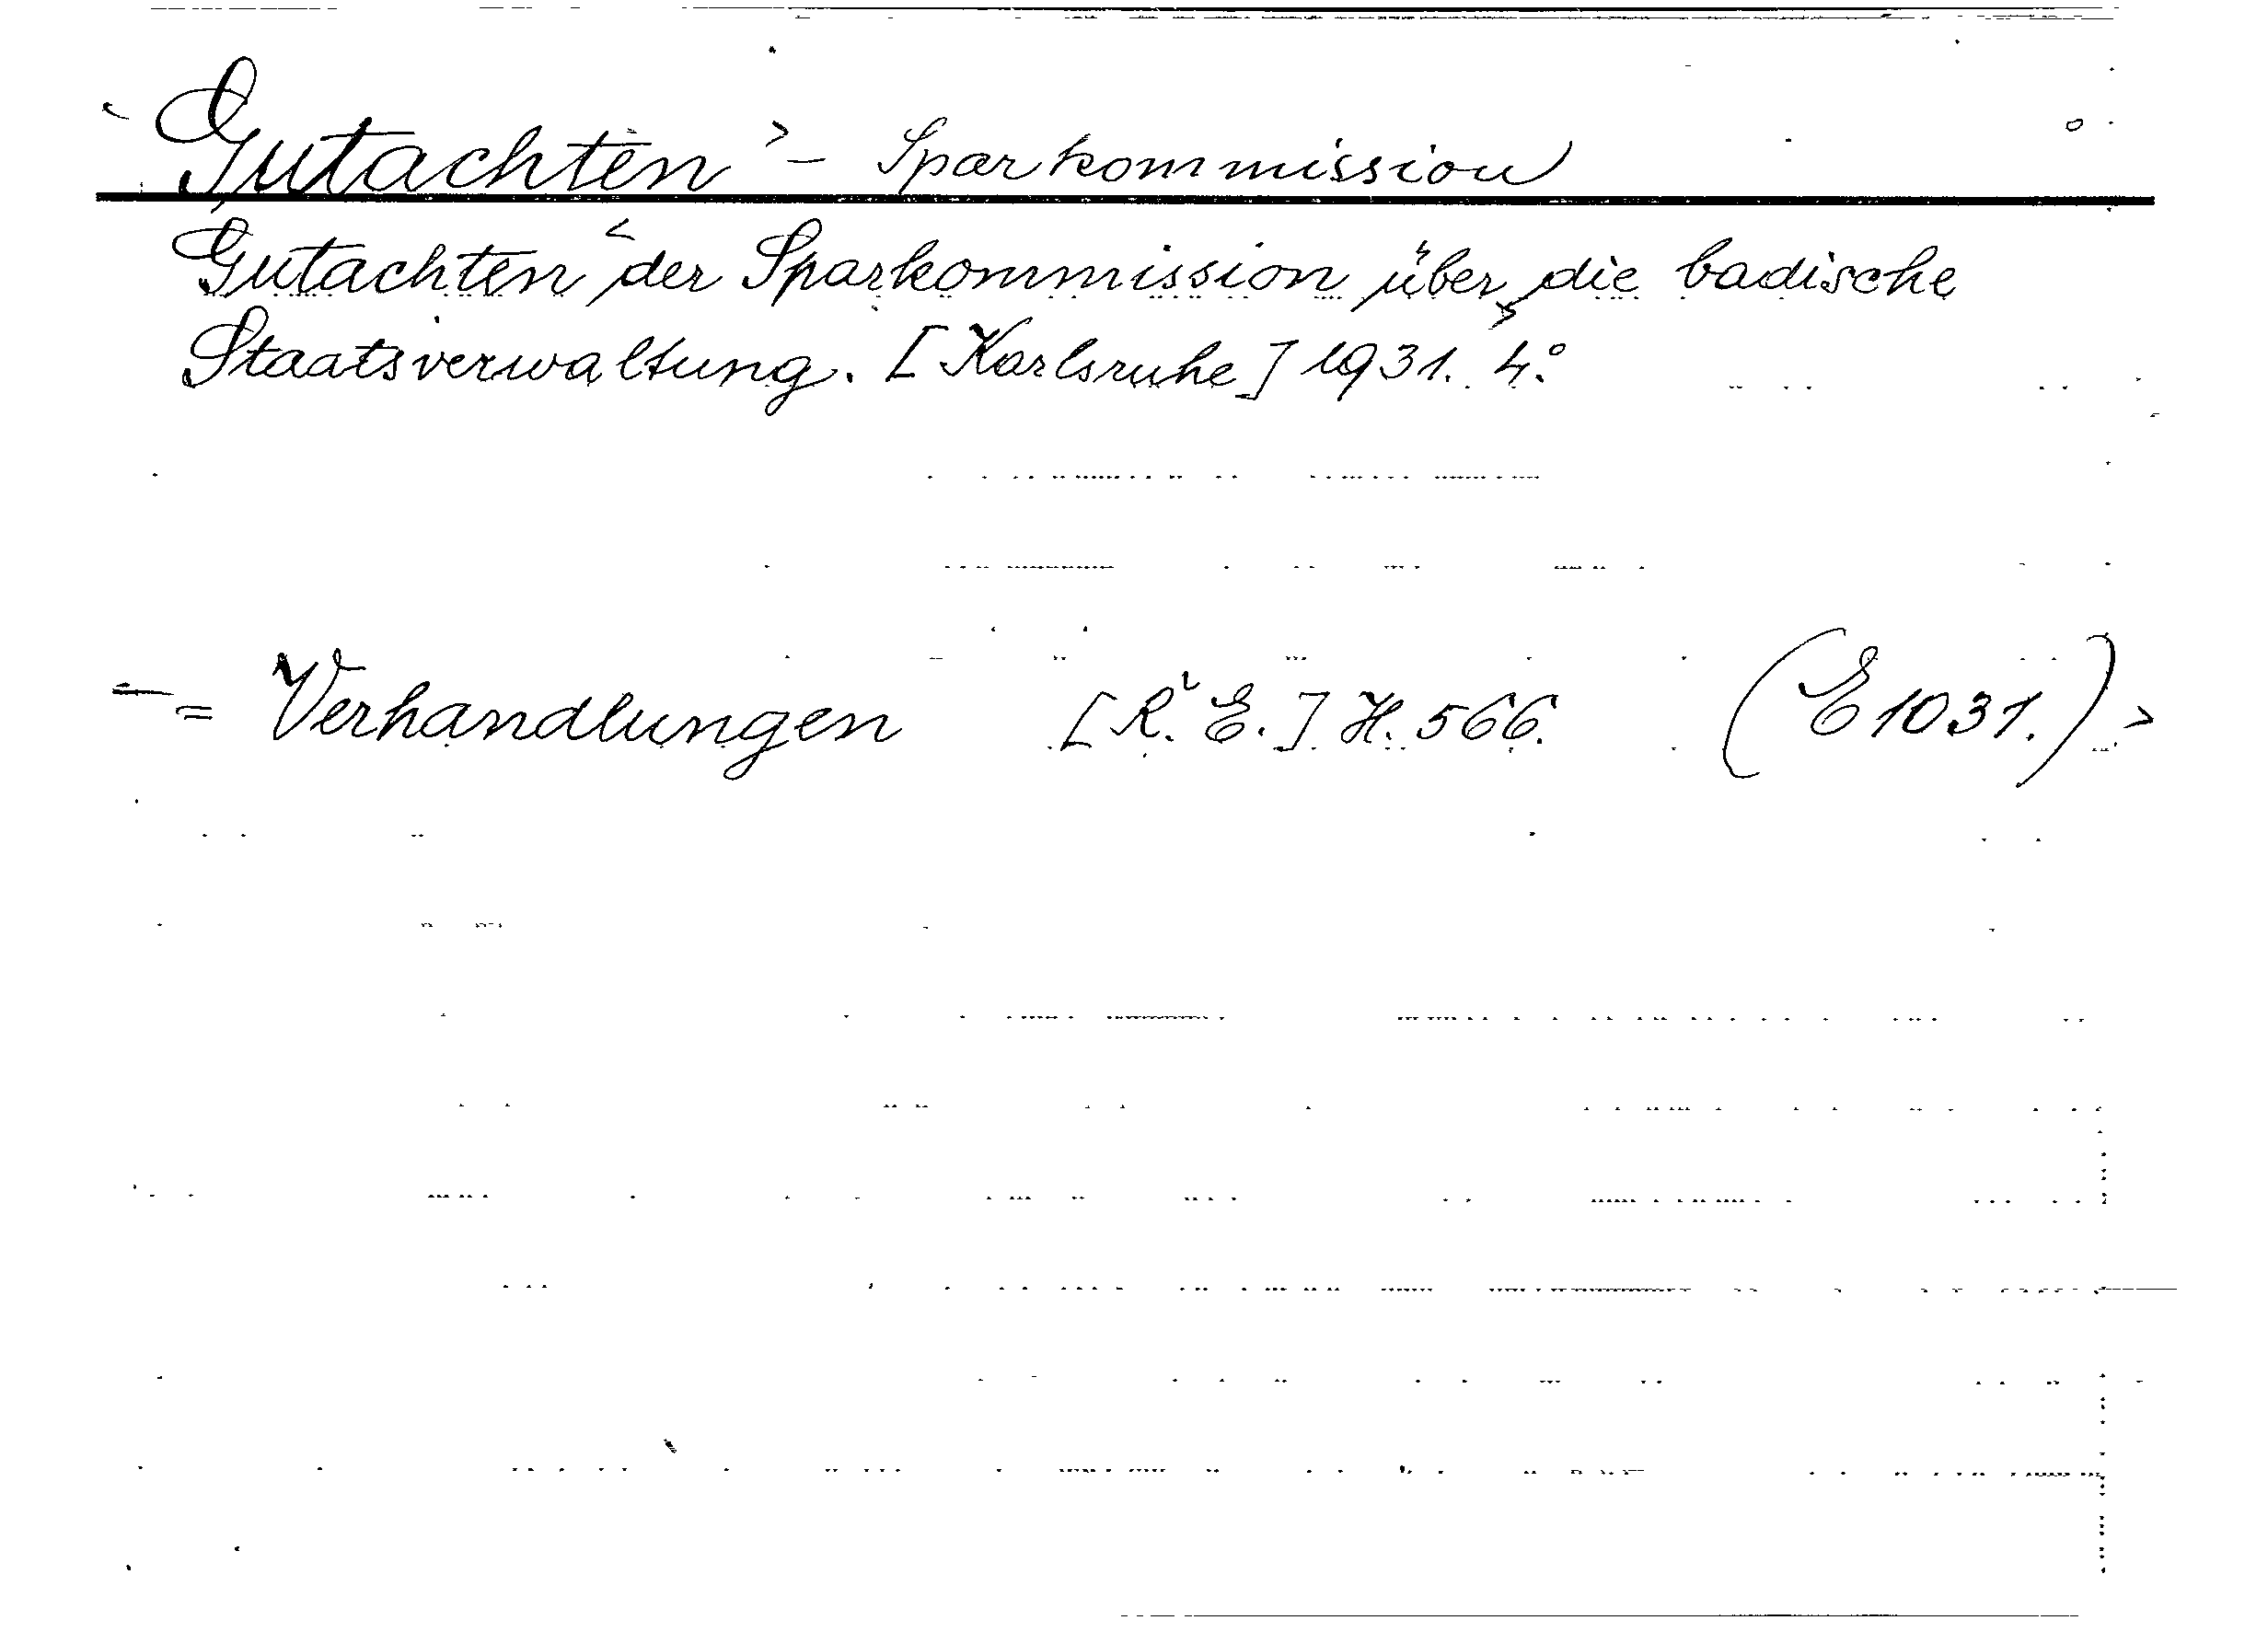 Gutachten - Sparkommission
Gutachten der Sparkommission über die badische
Staatsverwaltung. [Karlsruhe] 1931. 4°.
= Verhandlungen [R. E.] H. 566. (E 1031.)